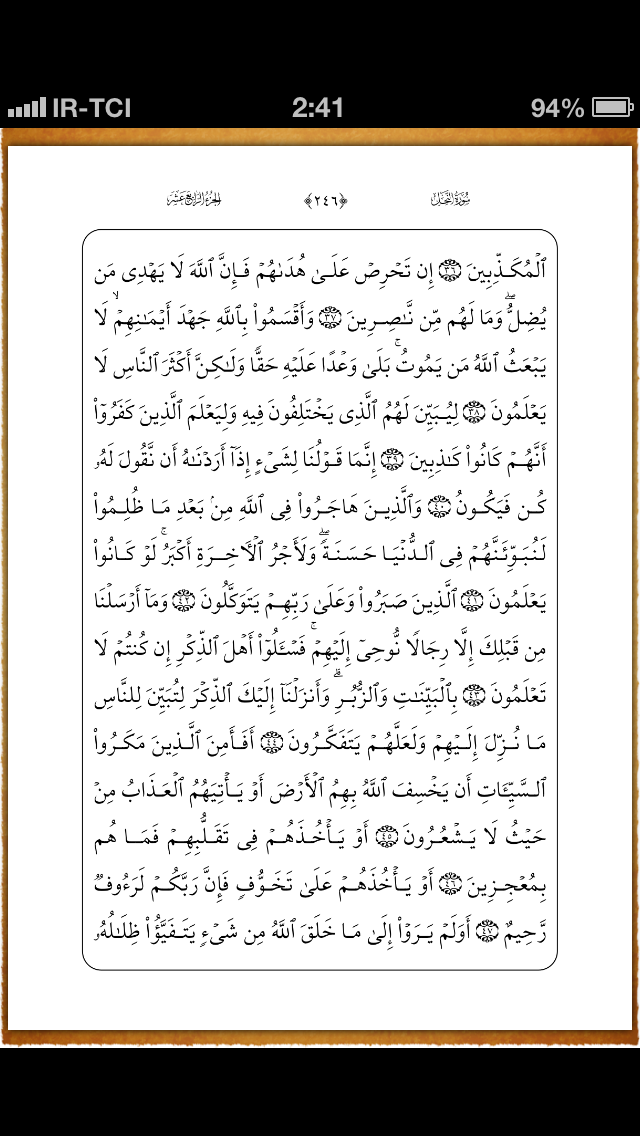 IR-TCI 2:41 94%
سُورَةُ النَّحْلِ ﴿٢٤٦﴾ الجُزْءُ الرَّابِعَ عَشَرَ
ٱلۡمُكَذِّبِينَ ٣٦ إِن تَحۡرِصۡ عَلَىٰ هُدَىٰهُمۡ فَإِنَّ ٱللَّهَ لَا يَهۡدِي مَن
يُضِلُّۖ وَمَا لَهُم مِّن نَّـٰصِرِينَ ٣٧ وَأَقۡسَمُواْ بِٱللَّهِ جَهۡدَ أَيۡمَـٰنِهِمۡۙ لَا
يَبۡعَثُ ٱللَّهُ مَن يَمُوتُۚ بَلَىٰ وَعۡدًا عَلَيۡهِ حَقّٗا وَلَـٰكِنَّ أَكۡثَرَ ٱلنَّاسِ لَا
يَعۡلَمُونَ ٣٨ لِيُبَيِّنَ لَهُمُ ٱلَّذِي يَخۡتَلِفُونَ فِيهِ وَلِيَعۡلَمَ ٱلَّذِينَ كَفَرُوٓاْ
أَنَّهُمۡ كَانُواْ كَـٰذِبِينَ ٣٩ إِنَّمَا قَوۡلُنَا لِشَيۡءٍ إِذَآ أَرَدۡنَـٰهُ أَن نَّقُولَ لَهُۥ
كُن فَيَكُونُ ٤٠ وَٱلَّذِينَ هَاجَرُواْ فِي ٱللَّهِ مِنۢ بَعۡدِ مَا ظُلِمُواْ
لَنُبَوِّئَنَّهُمۡ فِي ٱلدُّنۡيَا حَسَنَةٗۖ وَلَأَجۡرُ ٱلۡأٓخِرَةِ أَكۡبَرُۚ لَوۡ كَانُواْ
يَعۡلَمُونَ ٤١ ٱلَّذِينَ صَبَرُواْ وَعَلَىٰ رَبِّهِمۡ يَتَوَكَّلُونَ ٤٢ وَمَآ أَرۡسَلۡنَا
مِن قَبۡلِكَ إِلَّا رِجَالٗا نُّوحِيٓ إِلَيۡهِمۡۚ فَسۡـَٔلُوٓاْ أَهۡلَ ٱلذِّكۡرِ إِن كُنتُمۡ لَا
تَعۡلَمُونَ ٤٣ بِٱلۡبَيِّنَـٰتِ وَٱلزُّبُرِۗ وَأَنزَلۡنَآ إِلَيۡكَ ٱلذِّكۡرَ لِتُبَيِّنَ لِلنَّاسِ
مَا نُزِّلَ إِلَيۡهِمۡ وَلَعَلَّهُمۡ يَتَفَكَّرُونَ ٤٤ أَفَأَمِنَ ٱلَّذِينَ مَكَرُواْ
ٱلسَّيِّـَٔاتِ أَن يَخۡسِفَ ٱللَّهُ بِهِمُ ٱلۡأَرۡضَ أَوۡ يَأۡتِيَهُمُ ٱلۡعَذَابُ مِنۡ
حَيۡثُ لَا يَشۡعُرُونَ ٤٥ أَوۡ يَأۡخُذَهُمۡ فِي تَقَلُّبِهِمۡ فَمَا هُم
بِمُعۡجِزِينَ ٤٦ أَوۡ يَأۡخُذَهُمۡ عَلَىٰ تَخَوُّفٖ فَإِنَّ رَبَّكُمۡ لَرَءُوفٞ
رَّحِيمٌ ٤٧ أَوَلَمۡ يَرَوۡاْ إِلَىٰ مَا خَلَقَ ٱللَّهُ مِن شَيۡءٖ يَتَفَيَّؤُاْ ظِلَـٰلُهُۥ